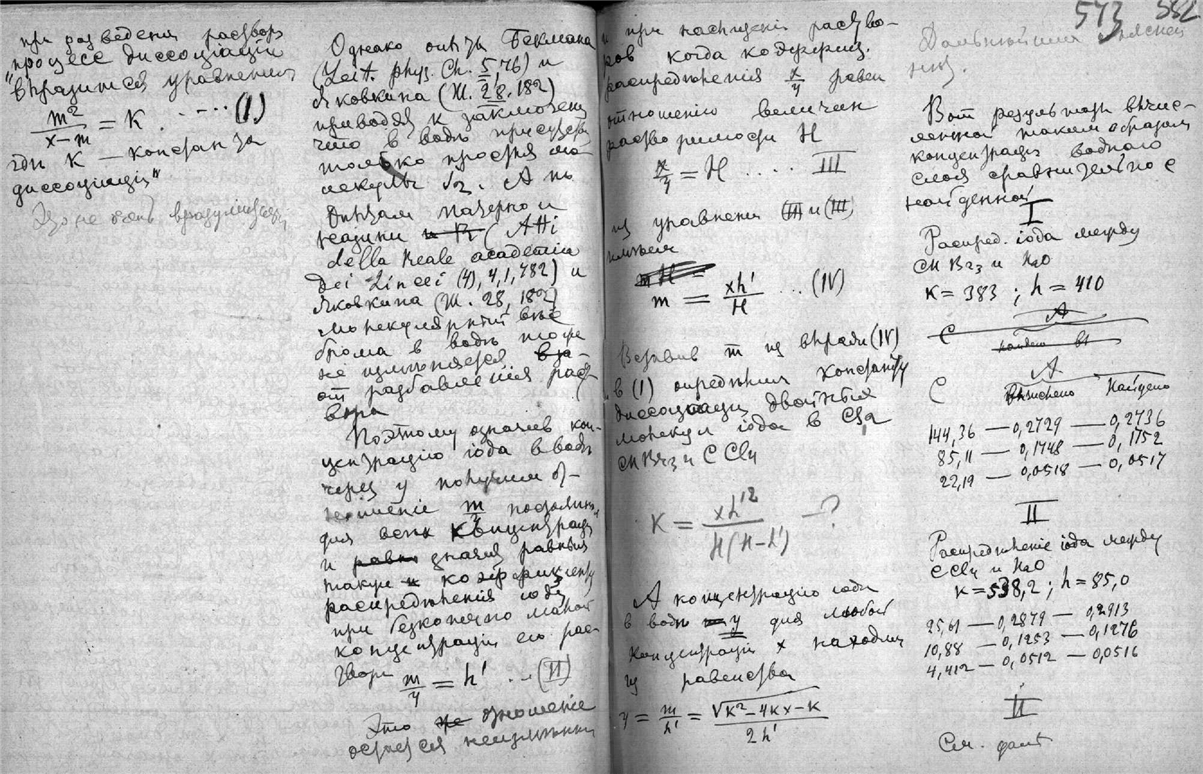 при разведении раствора
"процесс диссоціаціи
выразится уравнением
m²/(x-m) = K . . - · · (I)
гдѣ K — константа
диссоціаціи"
Это не есть
Однако опыты Бекмана
(Zeit. phys. Ch. 5, 76) и
Яковкина (Ж. 28. 182)
приводят к заключен.
что в водѣ присутств.
только простыя мо-
лекулы J₂. А по
опытам
( Atti
della Reale academia
dei Lincei (4), 4, 1, 782) и
Яковкина (Ж. 28, 182)
молекулярный вѣс
брома в водѣ тоже
не измѣняется
от разбавления раст-
вора
Поэтому означив кон-
центрацію іода в водѣ
через y получим от-
ношеніе m/y постоянно
для всѣх концентрацій
и равн значит равным
также и коэффиціенту
распредѣленія іода
при безконечно малой
концентраціи его рас-
твора m/y = h' · · (II)
Это же отношеніе
остается неизмѣнным
и при насыщеніи раство-
ров когда коэффиц.
распредѣленія x/y равен
отношению величин
растворимости H
x/y = H . . . . III
из уравнения (II) и (III)
имѣем
m H =
m = xh'/H · · (IV)
Вставив m из выраж (IV)
в (1) опредѣлим константу
диссоціаціи двойных
молекул іода в CS₂
CHBr₃ и CCl₄
K = xh'²/H(H-h') —?
А концентрацію іода
в водѣ y для любой
концентраціи x находим
из равенства
y = m/h' = √K²-4Kx-K/2h'
573 582
Дальнѣйшія
Вот результаты вычис-
ленной таким образом
концентраціи водного
слоя сравнительно с
найденной
I
Распред. іода между
CHBr₃ и H₂O
K = 383 ; h = 410
A
C
A
C Вычислено Найдено
144,36 — 0,2729 — 0,2736
85,11 — 0,1748 — 0,1752
22,19 — 0,0518 — 0,0517
II
Распредѣленіе іода между
CCl₄ и H₂O
K = 538,2 ; h = 85,0
25,61 — 0,2879 — 0,2913
10,88 — 0,1253 — 0,1276
4,412 — 0,0512 — 0,0516
II
См.